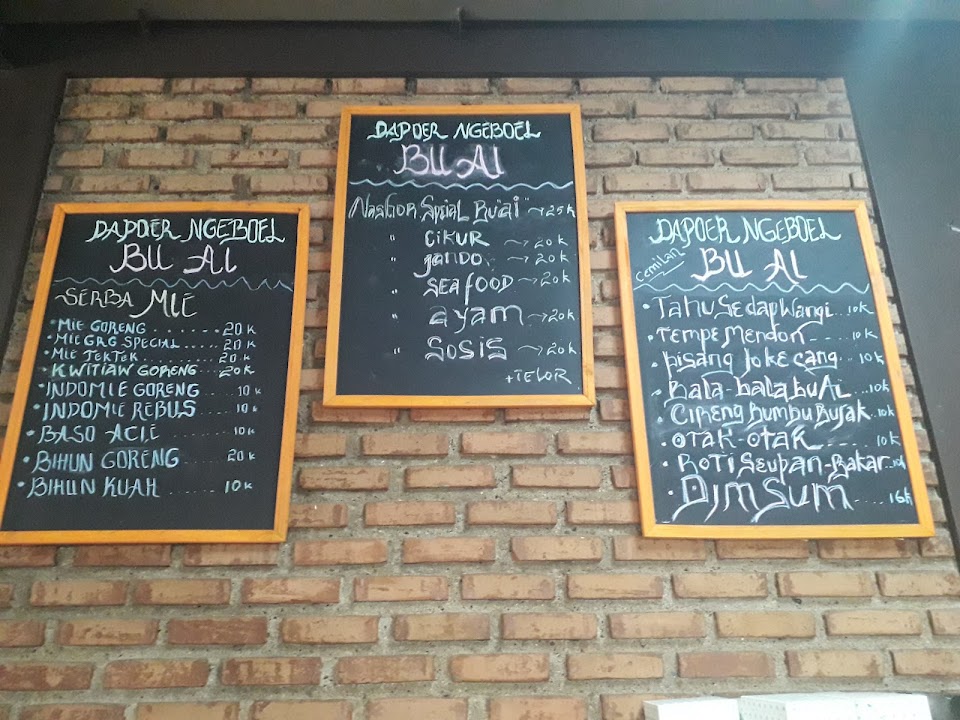 DAPOER NGEBOEL
BU AI
SERBA MIE
• MIE GORENG ....... 20 K
• MIE GRG SPECIAL .... 20 K
• MIE TEKTEK ........ 20 K
• KWITIAW GORENG ... 20 K
• INDOMIE GORENG ... 10 K
• INDOMIE REBUS .... 10 K
• BASO ACIE ....... 10 K
• BIHUN GORENG .... 20 K
• BIHUN KUAH ...... 10 K
DAPOER NGEBOEL
BU AI
"Nasgor Spsial Bu'ai" → 25 K
" CIKUR → 20 K
" → 20 K
" SEAFOOD → 20 K
" ayam → 20 K
" SOSIS → 20 K
+ TELOR
DAPOER NGEBOEL
Cemilan
BU AI
• Tahu Sedap Wangi ... 10 K
• Tempe Mendon .... 10 K
• pisang Joke cang ... 10 K
• Bala-bala bu Ai .. 10 K
• Cireng Bumbu Bujak .. 10 K
• otak-otak ..... 10 K
• Roti Seupan-Bakar .. 10 K
• DIMSUM .... 16 K